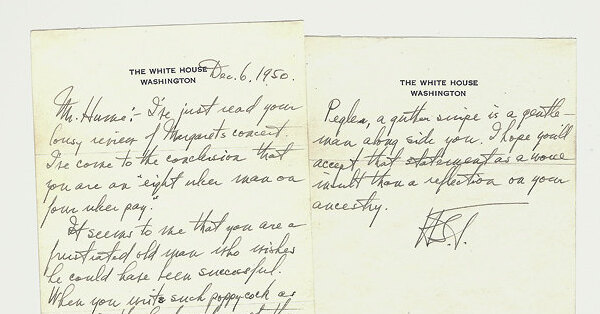 THE WHITE HOUSE
WASHINGTON
Dec. 6, 1950.
Mr. Hume:- I've just read your
lousy review of Margaret's concert.
I've come to the conclusion that
you are an "eight ulcer man on
four ulcer pay."
It seems to me that you are a
frustrated old man who wishes
he could have been successful.
When you write such poppy cock as
THE WHITE HOUSE
WASHINGTON
Pegler, a gutter snipe is a gentle-
man along side you. I hope you'll
accept that statement as a worse
insult than a reflection on your
ancestry.
H.S.T.